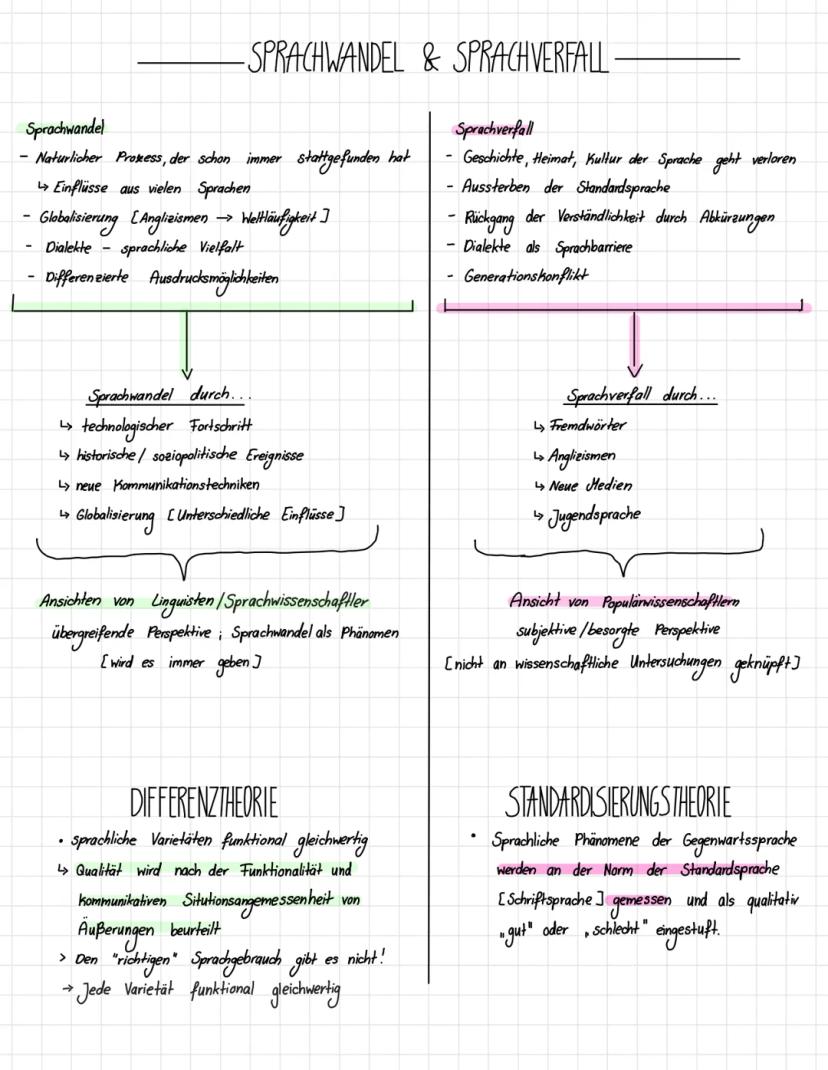 SPRACHWANDEL & SPRACHVERFALL
Sprachwandel
- Natürlicher Prozess, der schon immer stattgefunden hat
↳ Einflüsse aus vielen Sprachen
- Globalisierung [Anglizismen → Weltläufigkeit]
- Dialekte – sprachliche Vielfalt
- Differenzierte Ausdrucksmöglichkeiten
Sprachwandel durch...
↳ technologischer Fortschritt
↳ historische/ soziopolitische Ereignisse
↳ neue Kommunikationstechniken
↳ Globalisierung [Unterschiedliche Einflüsse]
Ansichten von Linguisten/Sprachwissenschaftler
übergreifende Perspektive ; Sprachwandel als Phänomen
[wird es immer geben]
DIFFERENZTHEORIE
• sprachliche Varietäten funktional gleichwertig
↳ Qualität wird nach der Funktionalität und
kommunikativen Situtionsangemessenheit von
Äußerungen beurteilt
> Den "richtigen" Sprachgebrauch gibt es nicht!
→ Jede Varietät funktional gleichwertig
Sprachverfall
- Geschichte, Heimat, Kultur der Sprache geht verloren
- Aussterben der Standardsprache
- Rückgang der Verständlichkeit durch Abkürzungen
- Dialekte als Sprachbarriere
- Generationskonflikt
Sprachverfall durch...
↳ Fremdwörter
↳ Anglizismen
↳ Neue Medien
↳ Jugendsprache
Ansicht von Populärwissenschaftlern
subjektive/besorgte Perspektive
[nicht an wissenschaftliche Untersuchungen geknüpft]
STANDARDISIERUNGSTHEORIE
• Sprachliche Phänomene der Gegenwartssprache
werden an der Norm der Standardsprache
[Schriftsprache] gemessen und als qualitativ
„gut" oder „schlecht" eingestuft.